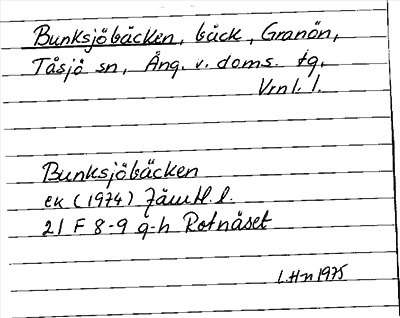 Bunksjöbäcken, bäck, Granön,
Tåsjö sn, Ång. v. doms. tg.
Vrnl. l.
Bunksjöbäcken
ek (1974) Jämtl. l.
21 F 8-9 g-h Rotnäset
L.Hn 1975